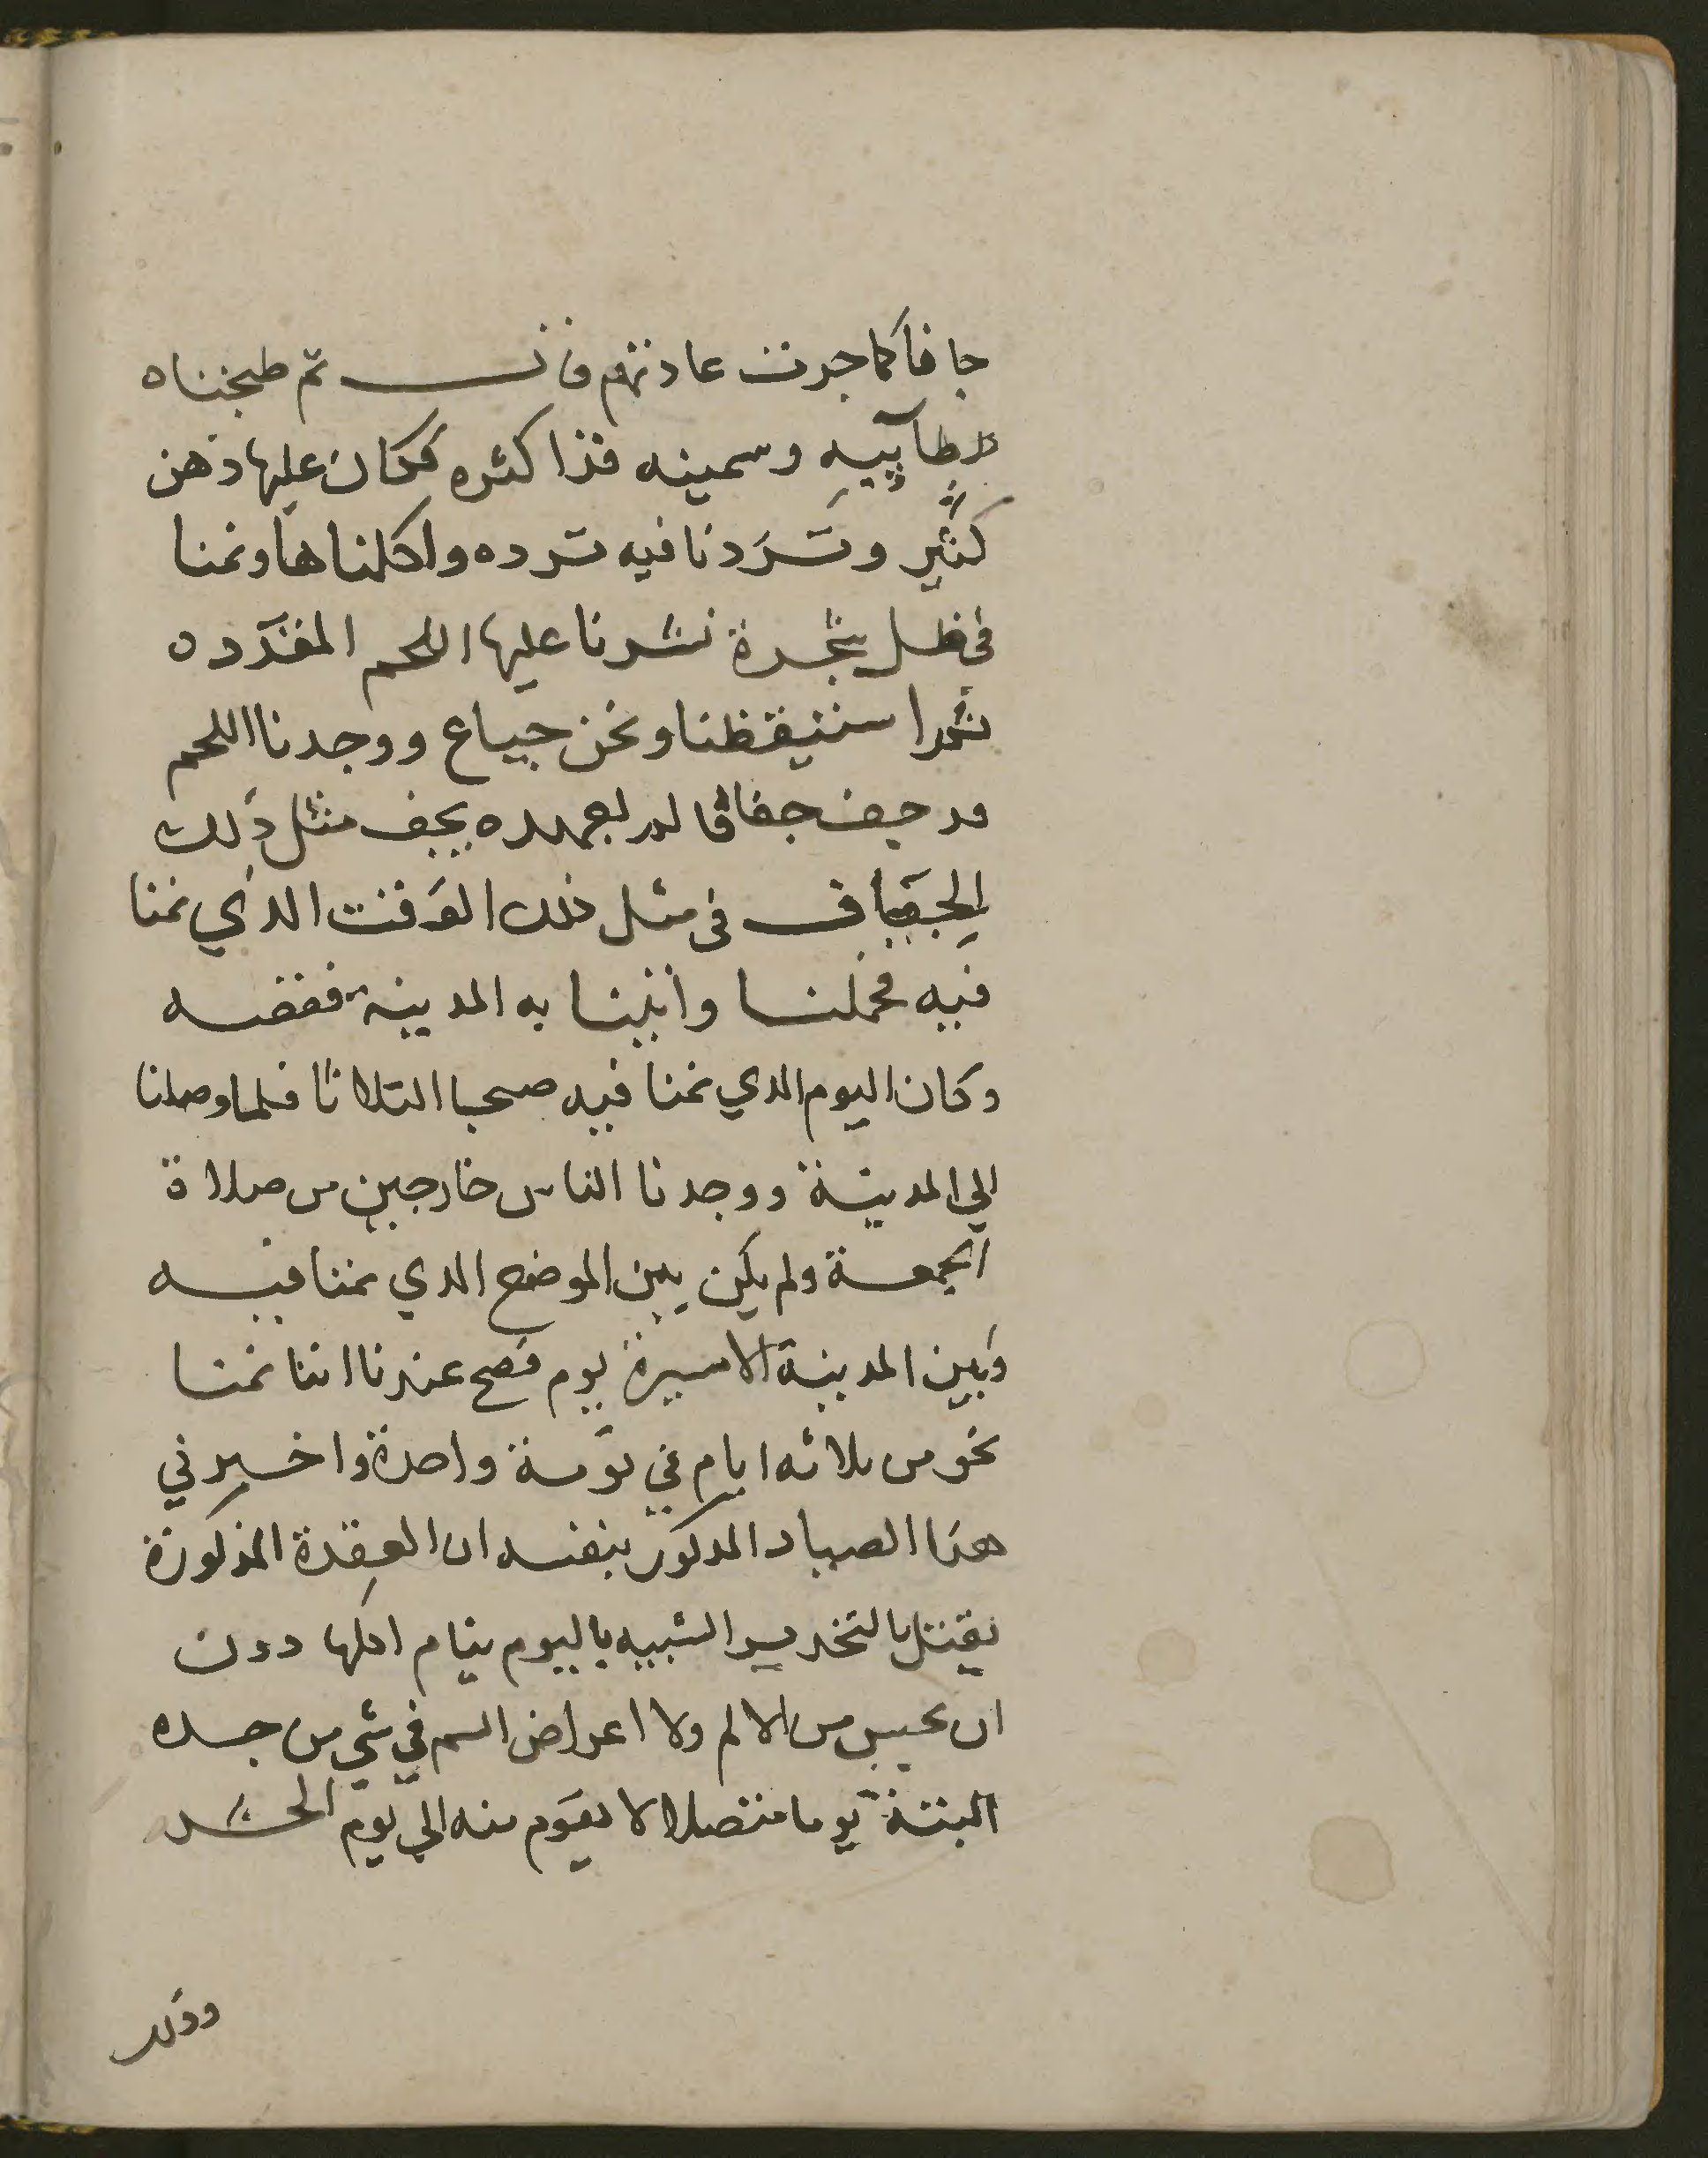 جا فا كما جرت عادتهم قال ثم طبخناه
وسمينه فذا كثره فكان عليها دهن
كثير وتردنا فيه ترده واكلناها ونمنا
في ظل شجرة نشرنا عليها اللحم المقدده
ثم استيقظنا ونحن جياع ووجدنا اللحم
قد جف جفافا لم يعهده يجف مثل ذلك
الجفاف في مثل ذلك الوقت الذي نمنا
فيه فحملنا واتينا به المدينة
وكان اليوم الدي نمنا فيه صحبا التلاثا فلما وصلنا
الي المدينة ووجدنا الناس خارجين من صلاة
الجمعة ولم يكن بين الموضع الدي نمنا فيه
وبين المدينة الا مسيرة يوم فصح عندنا اننا نمنا
نحو من ثلاثه ايام في نومة واحدة واخبرني
هذا الصياد المدكور بنفسه ان العقدة المذكورة
يقتل بالتخدير الشبيه باليوم ينام اكلها دون
ان يحبس من الالم ولا اعراض السم في شي من جسده
البتة يوما متصلا لا يقوم منه الي يوم الحشر